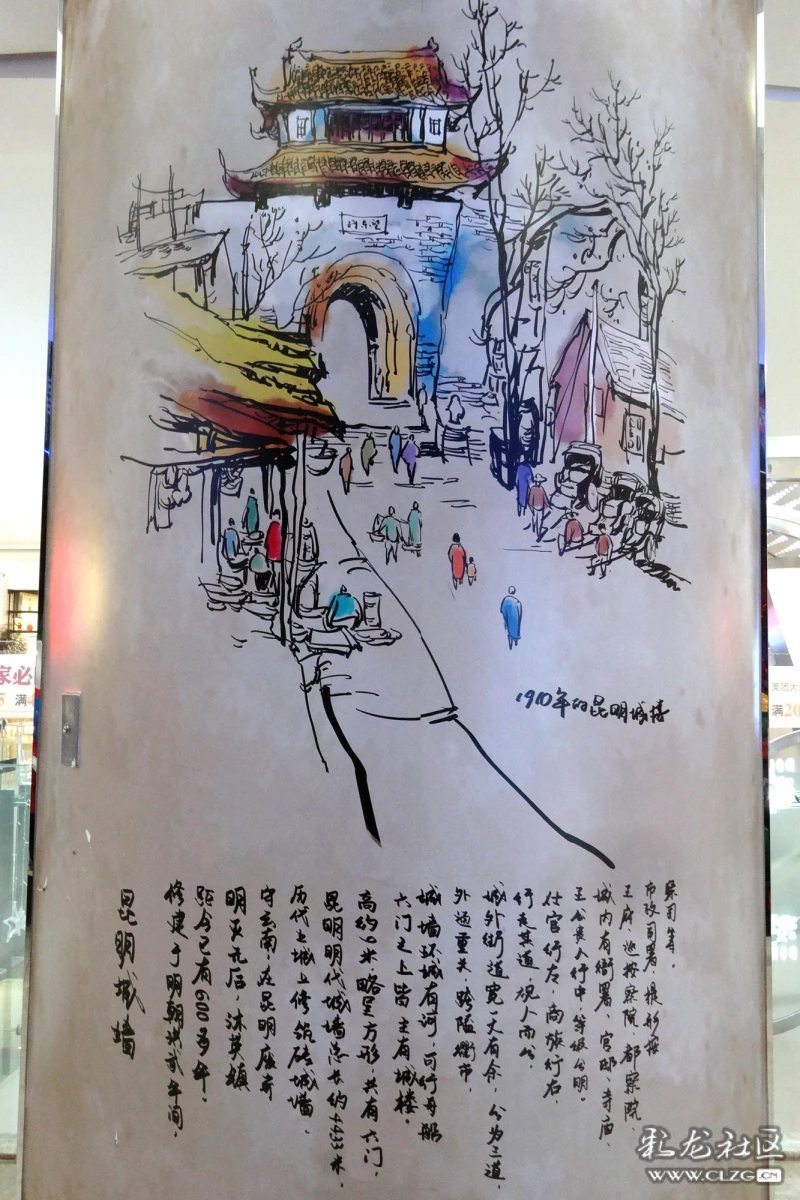 1910年的昆明城楼
昆明城墙
修建于明朝洪武年间,
距今已有600多年。
明灭元后,沐英镇
守云南,在昆明废弃
历代土城上修筑砖城墙。
昆明明代城墙总长约4433米,
高约9米略呈方形,共有六门,
六门之上皆立有城楼。
城墙环城有河,可行舟船
外通重关,跨隘衢市。
城外街道宽一丈有余,分为三道,
行走其道,视人而分。
仕官行左,商旅行右,
王公贵人行中,等级分明。
城内有衙署、官邸、寺庙、
王府、巡按察院、都察院、
布政司署、提刑按
察司等。
家必
满
美团大
满20
彩龙社区
WWW.CLZG.CN